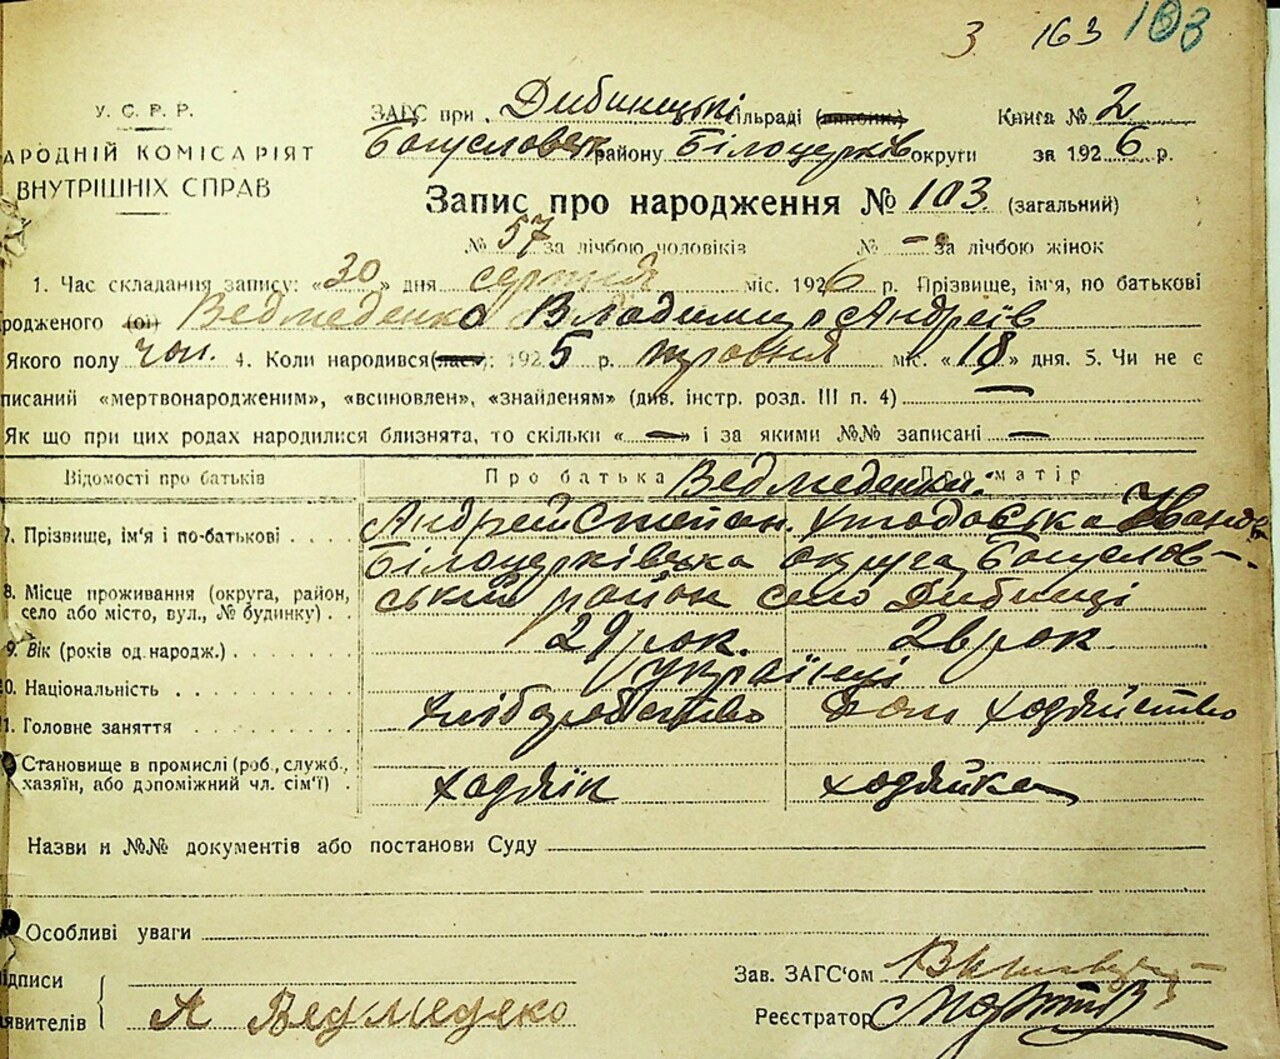 3. 163 103
У. С. Р. Р.
АРОДНІЙ КОМІСАРІЯТ
ВНУТРІШНІХ СПРАВ
ЗАГС при Дибинецькі сільраді Книга № 2
Богуславськ району Білоцерків округи за 1926 р.
Запис про народження № 103. (загальний)
№ 57 за лічбою чоловіків № – за лічбою жінок
1. Час складання запису: «30» дня серпня міс. 1926 р. Прізвище, ім'я, по батькові
родженого (ої) Ведмеденко Владимир Андреїв
Якого полу чол. 4. Коли народився (лась): 1925 р. травня міс. «18» дня. 5. Чи не є
писаний «мертвонародженим», «всиновлен», «знайденям» (див. інстр. розд. III п. 4) —
Як що при цих родах народилися близнята, то скільки «—» і за якими №№ записані —
Відомості про батьків Про батька Про матір
Ведмеденки
7. Прізвище, ім'я і по-батькові Андрей Степан.
Білоцерківська округа Богуслов-
8. Місце проживання (округа, район, село або місто, вул., № будинку) ський район село Дибинці
9. Вік (років од народж.) 29 рок. 26 рок
0. Національність українці
1. Головне заняття хліборобство Дом ходяйство
Становище в промислі (роб., служб., хазяїн, або допоміжний чл. сім'ї) ходяїн ходяйка
Назви и №№ документів або постанови Суду
Особливі уваги
ідписи Зав. ЗАГС'ом
явителів А Ведмедеко Реєстратор